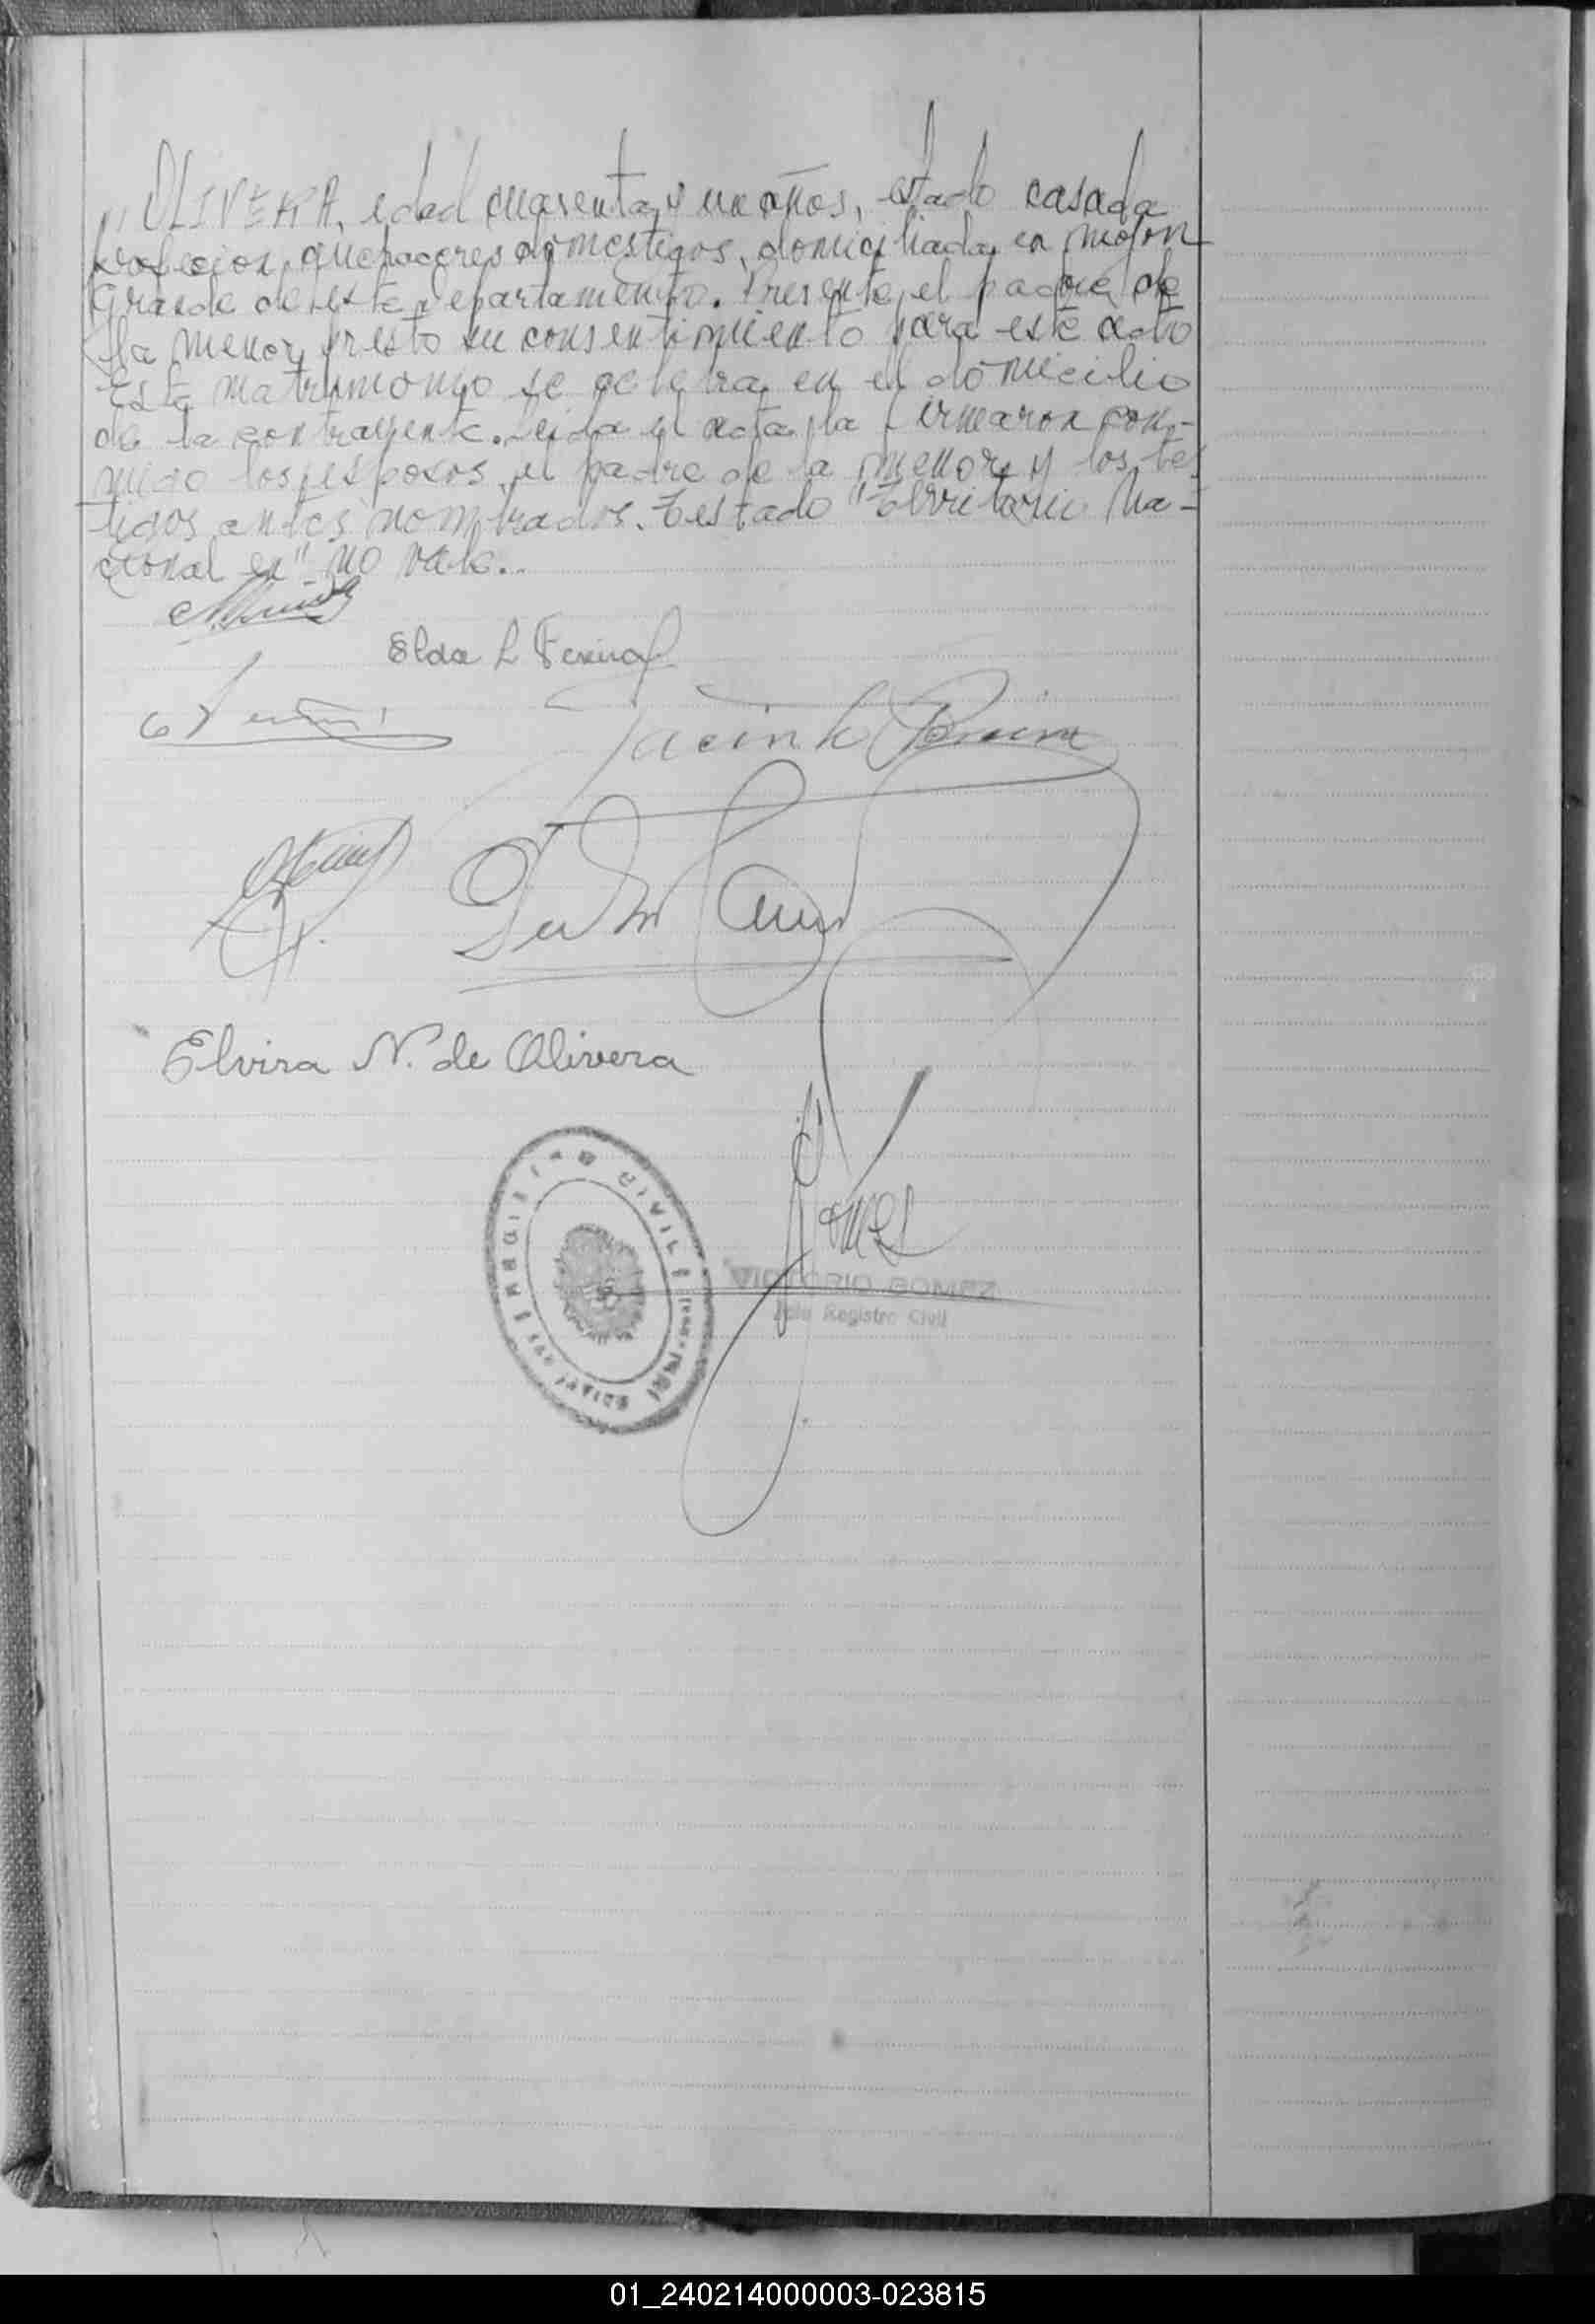 " OLIVERA, edad cuarenta y un años, estado casada
profecion quehaceres domesticos, domiciliada en Mojon
Grande de este Departamento. Presente el padre de
la menor presto su consentimiento para este acto
Este matrimonio se celebra en el domicilio
de la contrayente. Leida el acta la firmaron con-
migo los esposos, el padre de la menor y los tes
tigos antes nombrados. Testado "Territorio Na-
cional en" no vale..
Elda L Pereira
Jacinto Pereira
Elvira N. de Olivera
Gomez
VICTORIO GOMEZ
Jefe Registro Civil
CIVIL
01_240214000003-023815